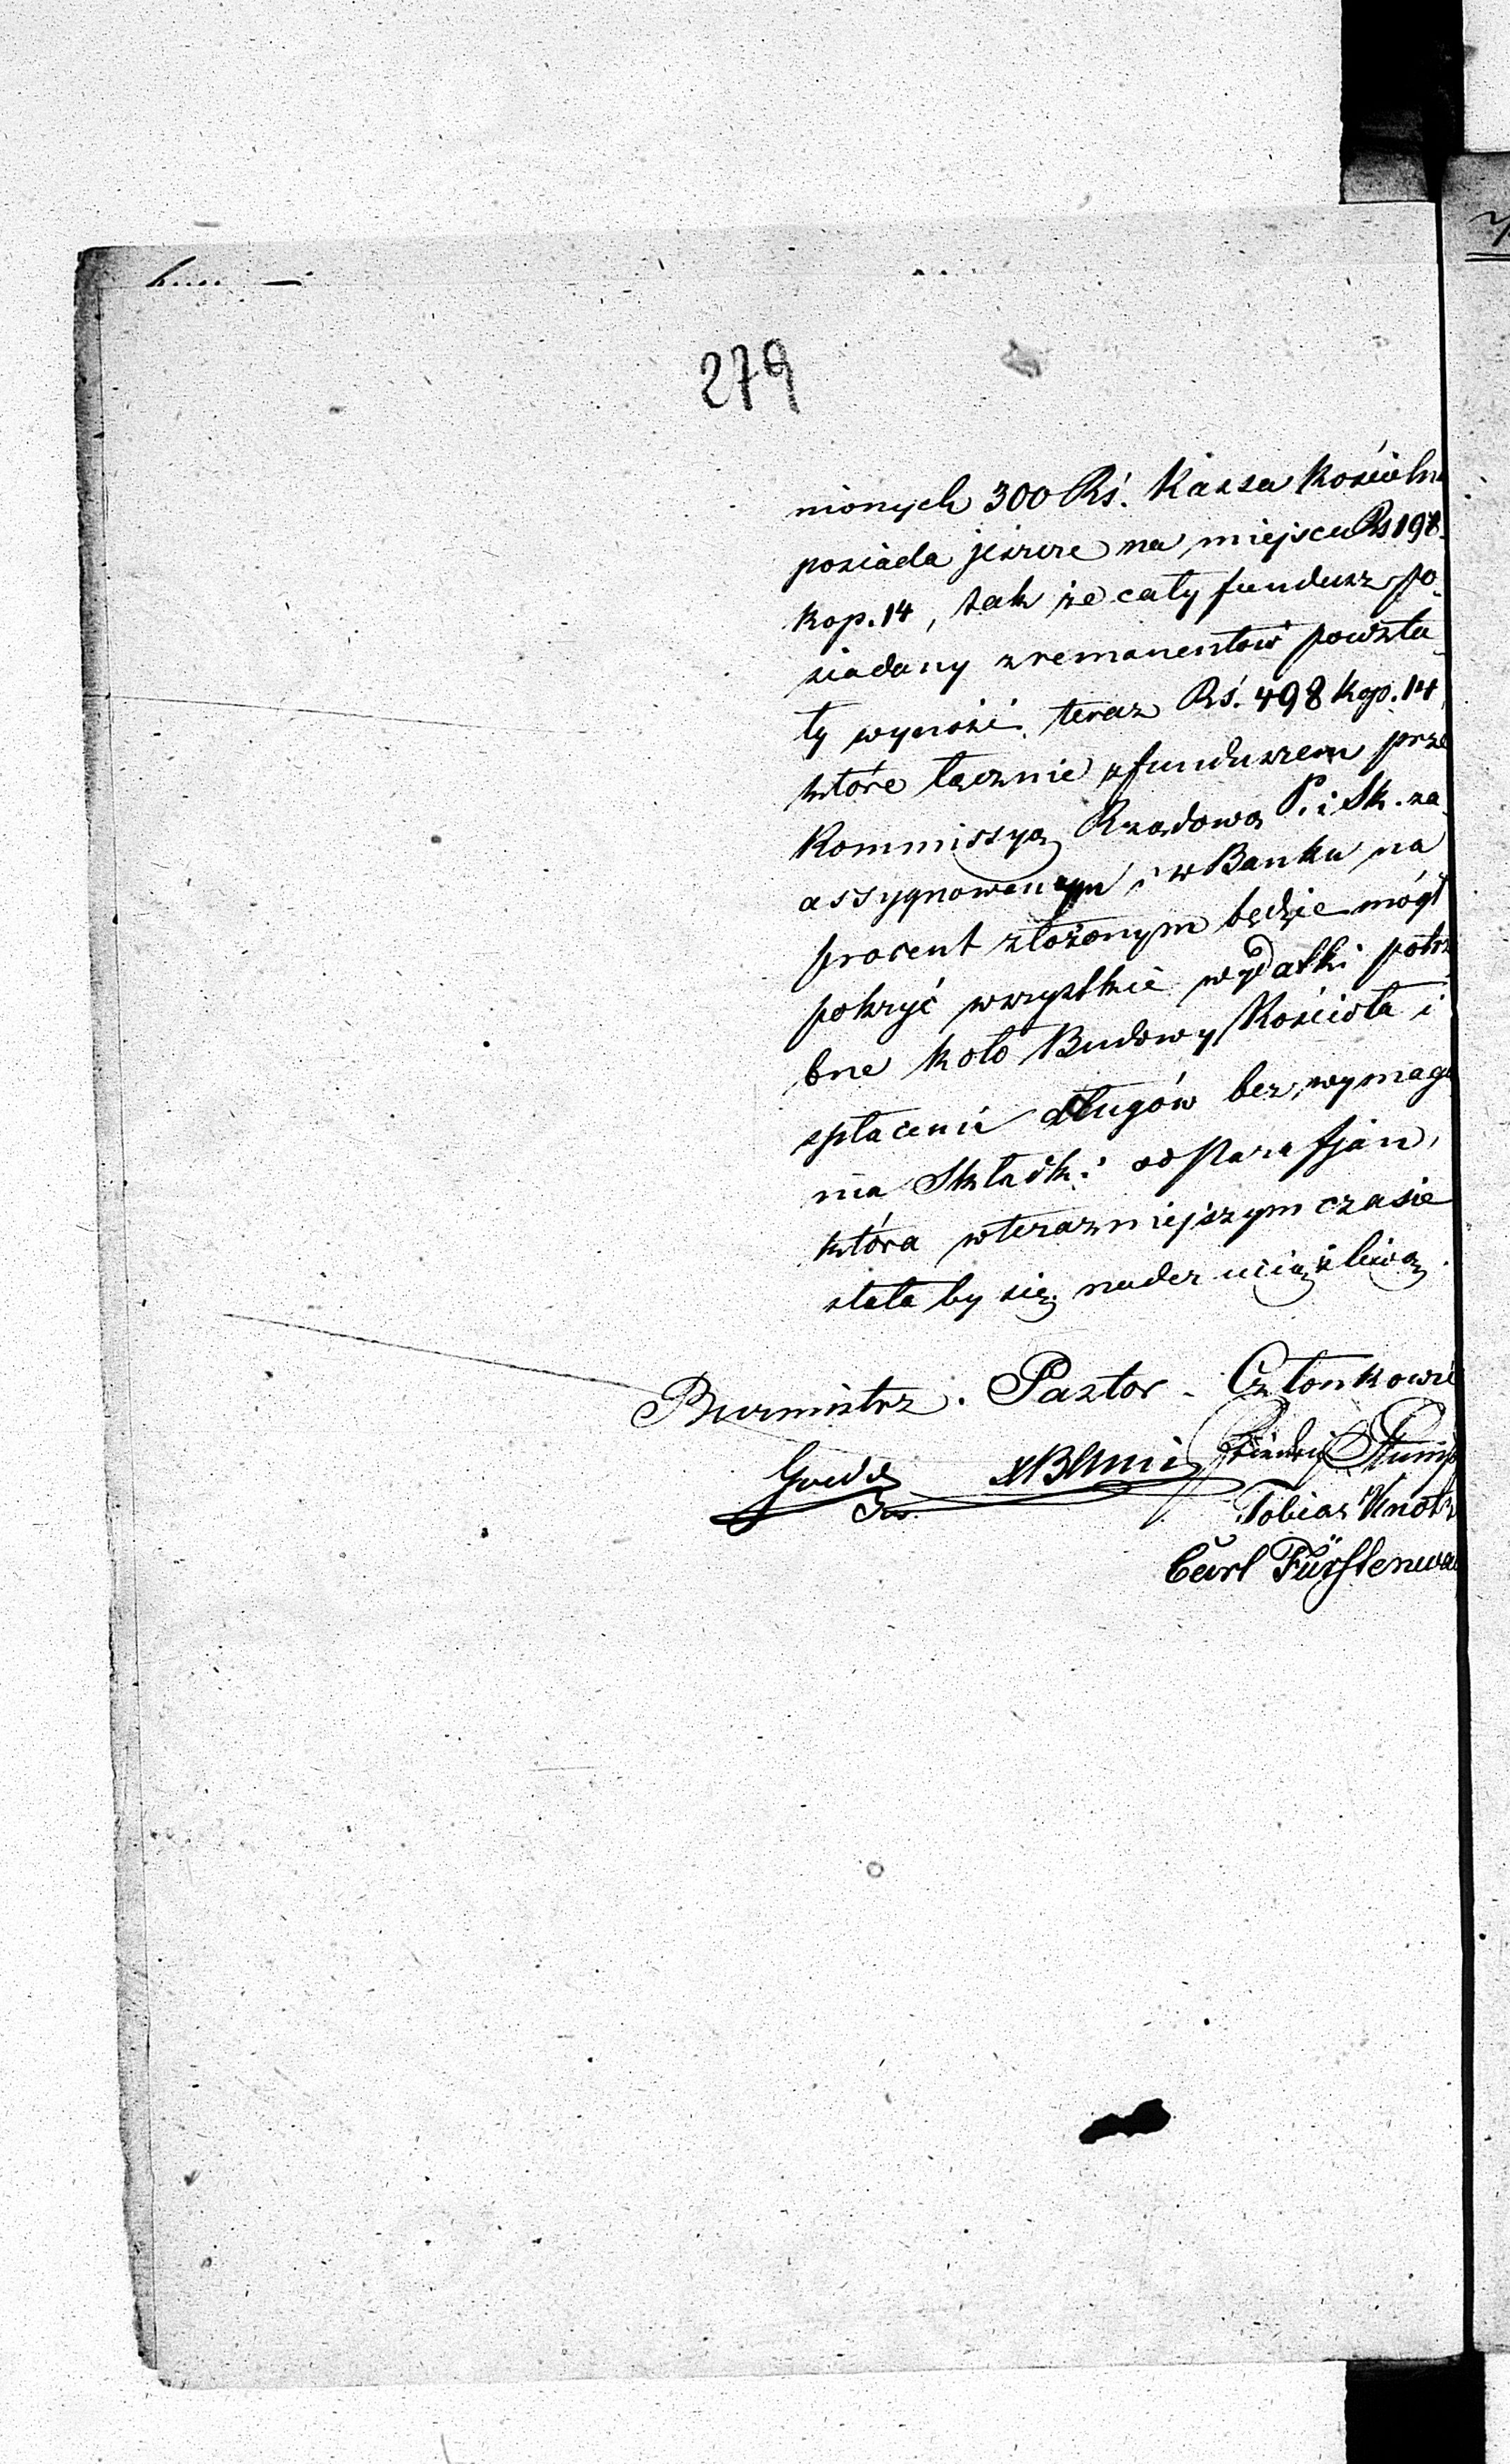 279
nionych 300 Rś. Kassa Kościelna
posiada jeszcze na miejscu Rs 198.
kop. 14, tak że cały fundusz po-
siadany z remanentów powsta-
ły wynosi teraz Rś. 498 kop. 14,
które łącznie z funduszem prze
Kommissyą Rządową P. i Sk. za-
assygnowanym i w Banku na
procent złożonym będzie mógł
pokryć wszystkie wydatki potrze
bne koło Budowy Kościoła i
spłacenie długów bez wymaga
nia Składki od Parafjan,
która w teraźniejszym czasie
stała by się nader uciążliwą.
Burmistrz. Pastor. Członkowie
Tobias Knot
Carl Fürstenwa